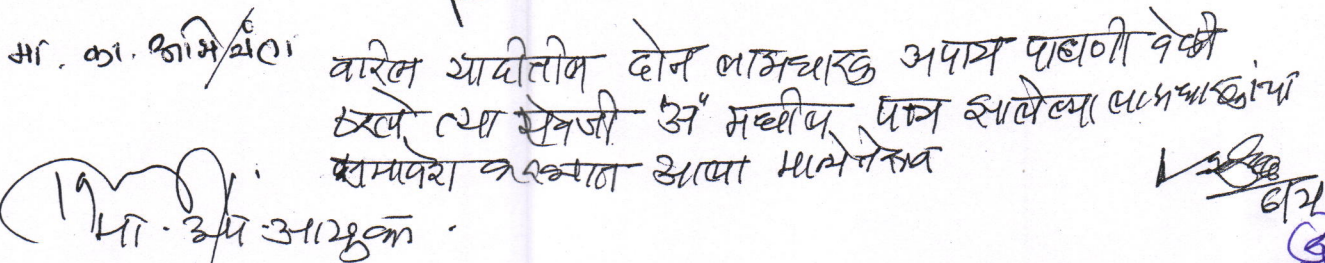 मा. का. अभियंता
वरील यादीतील दोन लाभधारक अपात्र पाहणी वेळी
ठरले त्या ऐवजी "अ" मधील पात्र झालेल्या लाभधारकांचा
समावेश करण्यात आला मान्यतेस्तव
मा. उप-आयुक्त.